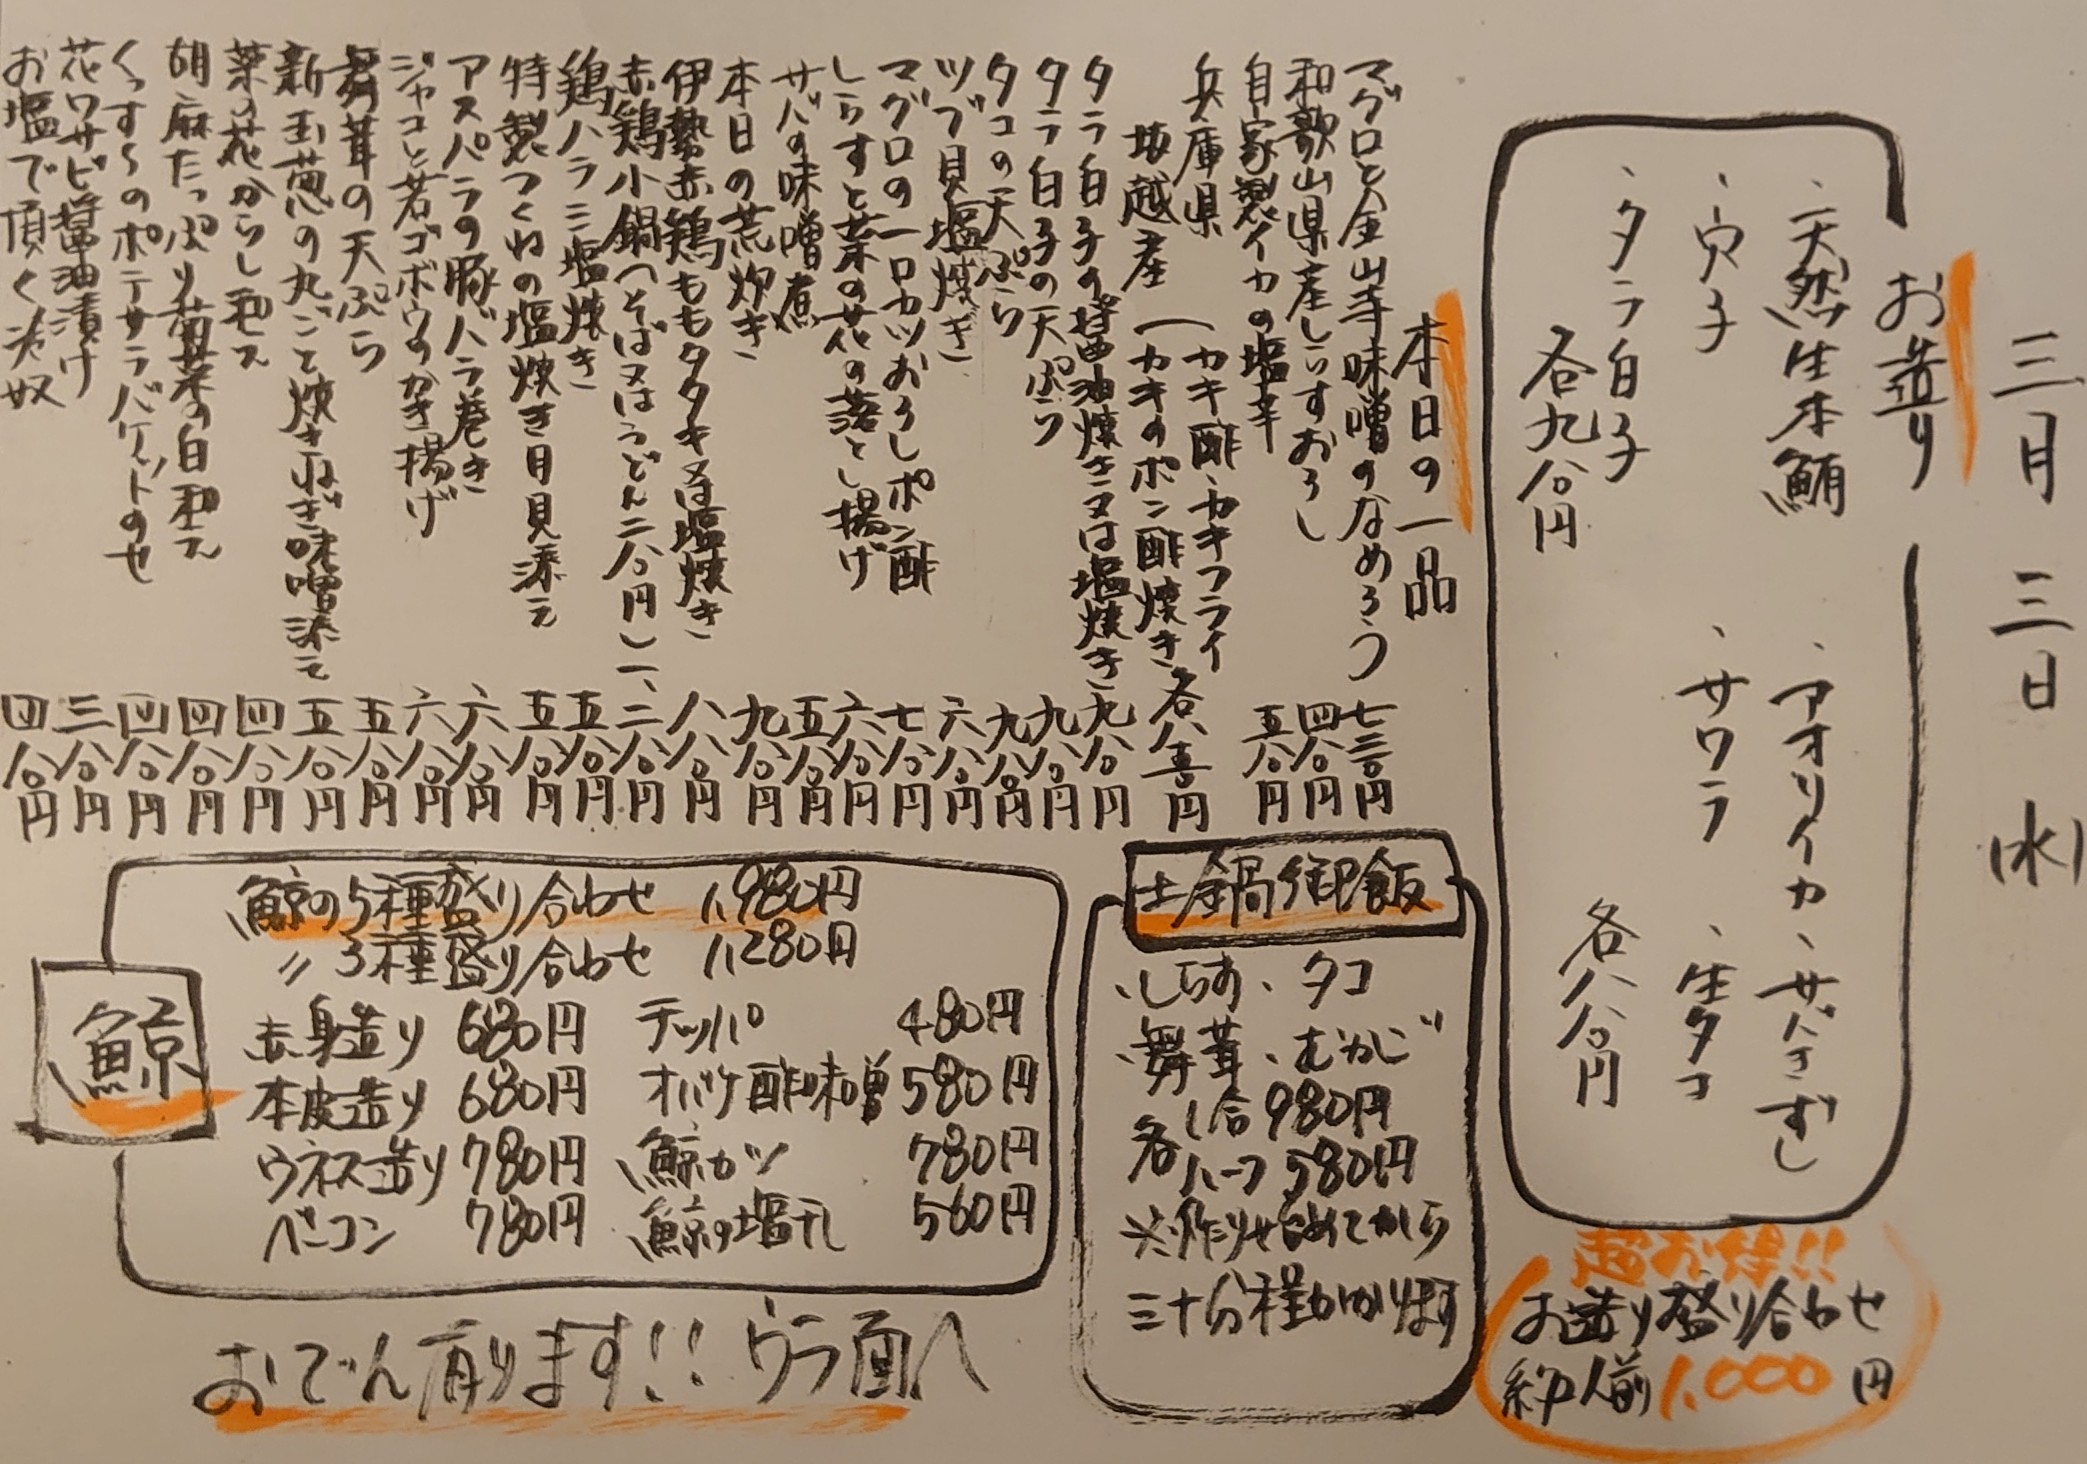 三月三日(水)
お造り
、天然生本鮪
、穴子
、タラ白子
各九八〇円
、アオリイカ、サバきずし
、サワラ 、生タコ
各八八〇円
超お得!!
お造り盛り合わせ
約一人前1,000円
本日の一品
マグロと金山寺味噌のなめろう 七三〇円
和歌山県産しらすおろし 四八〇円
自家製イカの塩辛 五八〇円
兵庫県 (カキ酢、カキフライ
坂越産 (カキのポン酢焼き 各八五〇円
タラ白子の醤油焼き又は塩焼き 九八〇円
タラ白子の天ぷら 九八〇円
タコの天ぷら 九八〇円
ツブ貝塩焼き 六八〇円
マグロの一口カツおろしポン酢 七八〇円
しらすと菜の花の落とし揚げ 六八〇円
サバの味噌煮 五八〇円
本日の荒炊き 九八〇円
伊勢赤鶏ももタタキ又は塩焼き 八八〇円
赤鶏小鍋(そば又はうどん二八〇円) 一、二八〇円
鶏ハラミ塩焼き 五八〇円
特製つくねの塩焼き月見添え 五八〇円
アスパラの豚バラ巻き 六八〇円
ジャコと若ゴボウのかき揚げ 六八〇円
舞茸の天ぷら 五八〇円
新玉葱の丸ごと焼きねぎ味噌添え 五八〇円
菜の花からし和え 四八〇円
胡麻たっぷり菊菜の白和え 四八〇円
くんすものポテサラバケットのせ 四八〇円
花ワサビ醤油漬け 三八〇円
お塩で頂く冷奴 四八〇円
土鍋御飯
、しらす、タコ
、舞茸、むかご
各 1合980円
ハーフ580円
※作りはじめてから
三十分程かかります
鯨
鯨の5種盛り合わせ 1,980円
〃3種盛り合わせ 1,280円
赤身造り 680円 テッパ 480円
本皮造り 680円 オバケ酢味噌 580円
ウネス造り 780円 鯨カツ 780円
ベーコン 780円 鯨の塩干し 560円
おでん有ります!!ウラ面へ